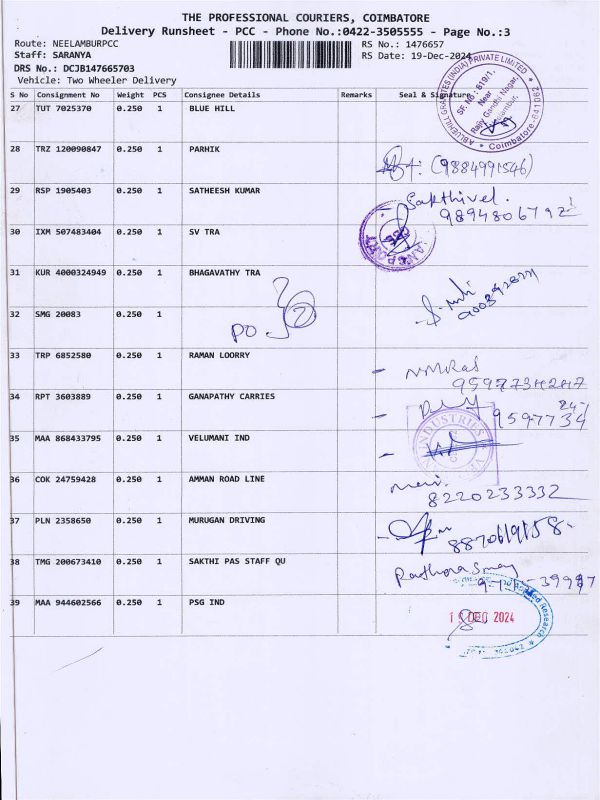 THE PROFESSIONAL COURIERS, COIMBATORE
Delivery Runsheet - PCC - Phone No.:0422-3505555 - Page No.:3
Route: NEELAMBURPCC RS No.: 1476657
Staff: SARANYA RS Date: 19-Dec-2024
DRS No.: DCJB147665703
Vehicle: Two Wheeler Delivery
S No Consignment No Weight PCS Consignee Details Remarks Seal & Signature
27 TUT 7025370 0.250 1 BLUE HILL
28 TRZ 120090847 0.250 1 PARHIK (9884991546)
29 RSP 1905403 0.250 1 SATHEESH KUMAR Sakthivel.
30 IXM 507483404 0.250 1 SV TRA
31 KUR 4000324949 0.250 1 BHAGAVATHY TRA
32 SMG 20083 0.250 1 PO.
33 TRP 6852580 0.250 1 RAMAN LOORRY
34 RPT 3603889 0.250 1 GANAPATHY CARRIES
35 MAA 868433795 0.250 1 VELUMANI IND INDUSTRIES
36 COK 24759428 0.250 1 AMMAN ROAD LINE
8220233332
37 PLN 2358650 0.250 1 MURUGAN DRIVING
38 TMG 200673410 0.250 1 SAKTHI PAS STAFF QU
39 MAA 944602566 0.250 1 PSG IND DEC 2024